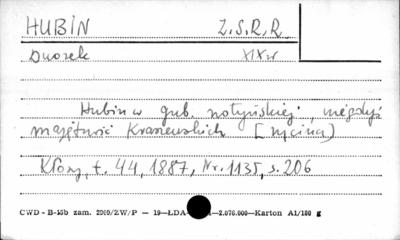 HUBIN Z.S.R.R.
Dworek XIX w
Hubin w gub. wołyńskiej, niegdyś
majętność Kraszewskich [rycina]
Kłosy, t. 44, 1887, Nr. 1135, s. 206
CWD - B-15b zam. 2069/ZW/P — 19—ŁDA- —2.076.000—Karton A1/180 g